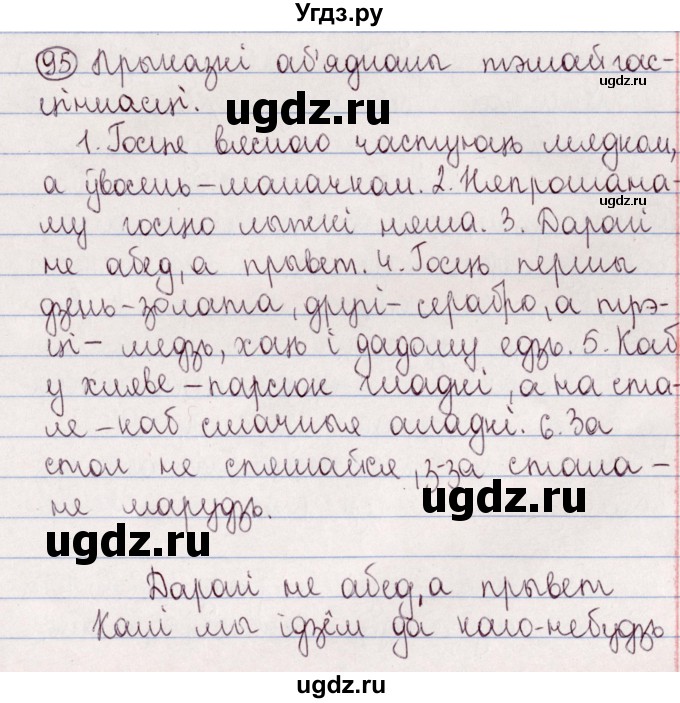 Угдз.ру
95 Прыказкі аб'яднаны тэмай гас-
ціннасці.
ugdz.ru
1. Госце вясною частуюць мядком,
а ўвосень – малачком. 2. Няпрошана-
му госцю лыжкі няма. 3. Дарагі
не абед, а прывет. 4. Госць першы
дзень – золата, другі – серабро, а трэ-
ці – медзь, хоць і дадому едзь. 5. Каб
у хляве – парсюк гладкі, а на ста-
ле – каб смачныя аладкі. 6. За
стол не спяшайся, з-за стала –
не марудзь.
ugdz.ru
ugdz.ru
Дарагі не абед, а прывет
Калі мы ідзём да каго-небудзь
ugdz.ru